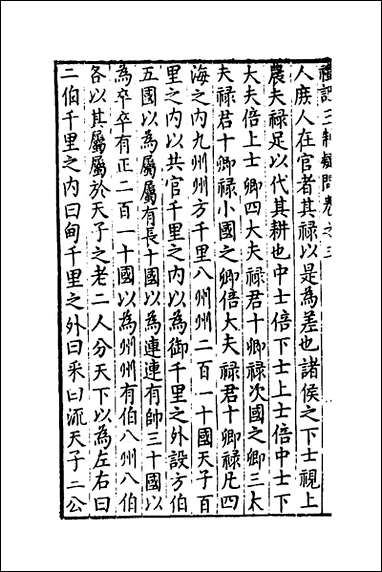 禮記王制疑問卷之三
人庶人在官者其祿以是為差也諸侯之下士視上
農夫祿足以代其耕也中士倍下士上士倍中士下
大夫倍上士卿四大夫祿君十卿祿次國之卿三大
夫祿君十卿祿小國之卿倍大夫祿君十卿祿凡四
海之內九州州方千里八州州二百一十國天子百
里之內以共官千里之內以為御千里之外設方伯
五國以為屬屬有長十國以為連連有帥三十國以
為卒卒有正二百一十國以為州州有伯八州八伯
各以其屬屬於天子之老二人分天下以為左右曰
二伯千里之內曰甸千里之外曰采曰流天子三公